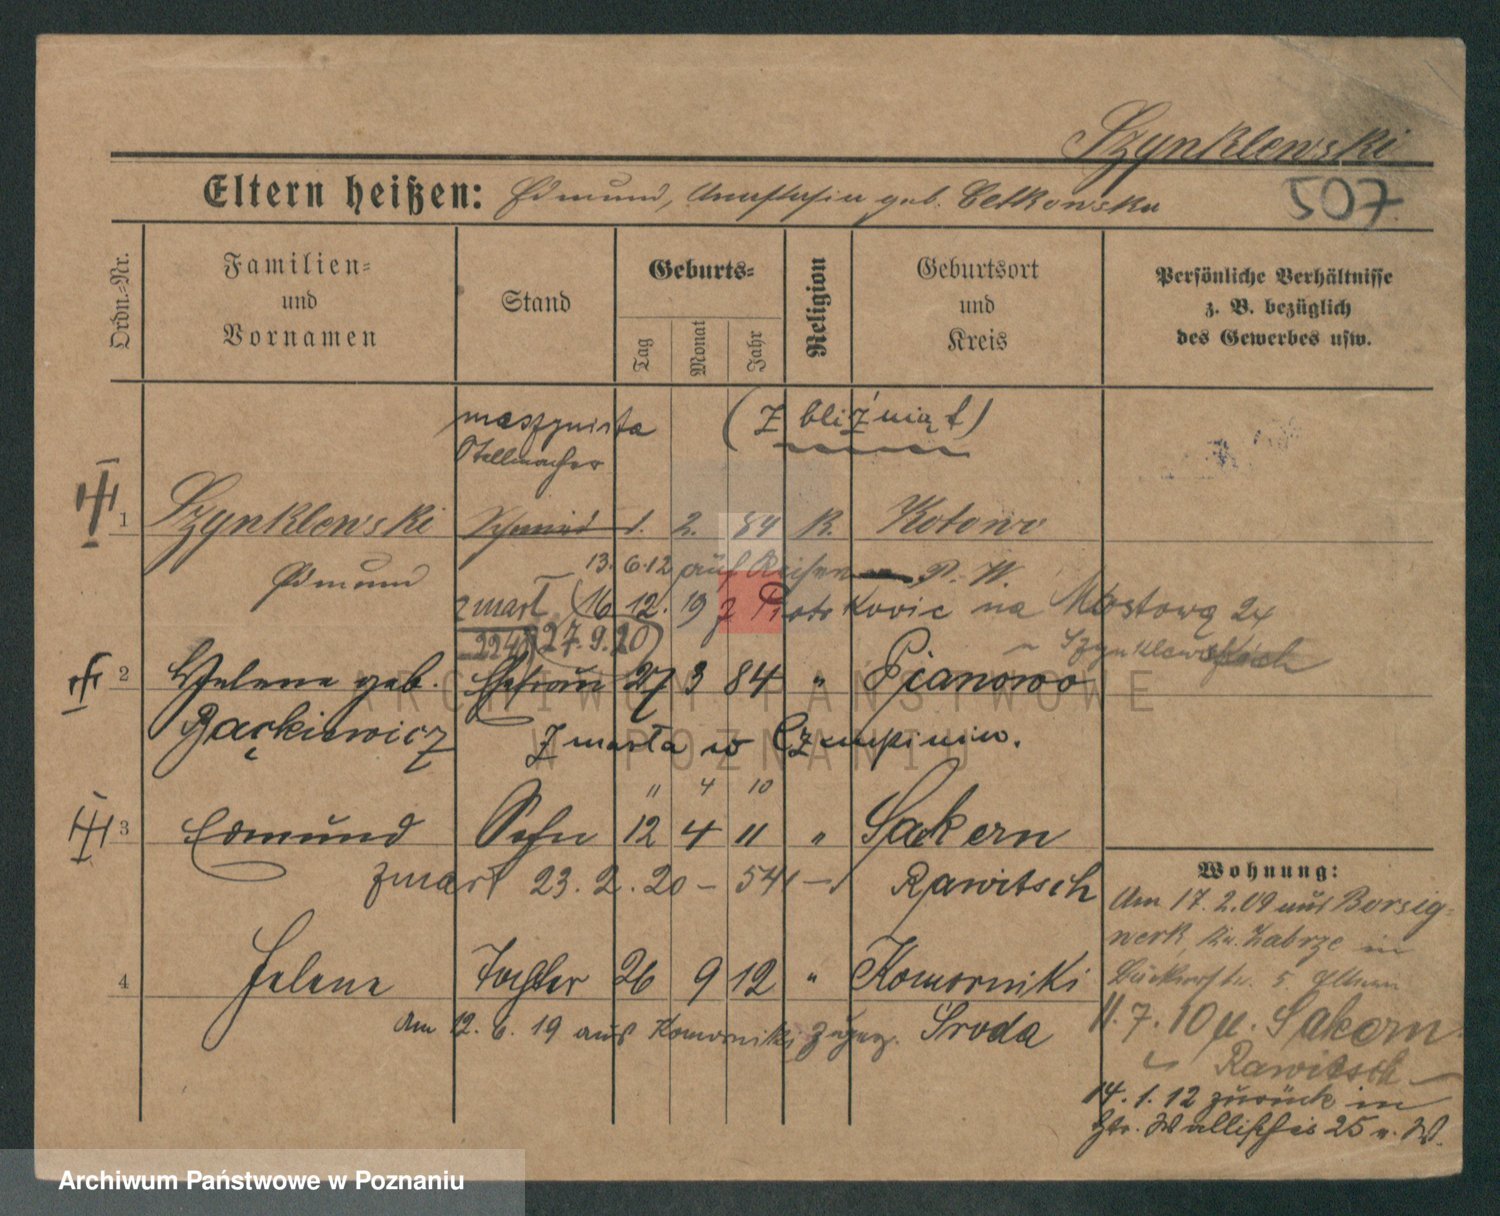 Szynklewski
Eltern heißen: Edmund, Anastasia geb. Celkowska
507
Ordn.-Nr.
Familien-
und
Vornamen
Stand
Geburts-
Tag
Monat
Jahr
Religion
Geburtsort
und
Kreis
Persönliche Verhältnisse
z. B. bezüglich
des Gewerbes usw.
maszynista (Z bliźniąt)
Stellmacher
1 Szynklewski Schmied 1. 2. 84 K. Kotowo
Edmund 13. 6. 12 auf Reisen P. W.
zmarł 16 12. 19 z Piotrkovic na Mostową 24
224 27. 9. 20 Szynklewskich
2 Helene geb. Ehefrau 27 3 84 " Pianowo
Bączkiewicz Zmarła w Czempiniu.
" 4 10
3 Edmund Sohn 12 4 11 " Sakern
zmarł 23. 2. 20 – 541 – Rawitsch
4 Helene Tochter 26 9 12 " Komorniki
Am 12. 6. 19 aus Komorniki zugez. Sroda
Wohnung:
Am 17. 2. 09 aus Borsig-
werk, Kr. Zabrze in
5. Eltern
11. 7. 10 n. Sakern
Rawitsch
14. 1. 12 zurück in
Gr. Wallischei 25 n. W.
ARCHIWUM PAŃSTWOWE
W POZNANIU
Archiwum Państwowe w Poznaniu